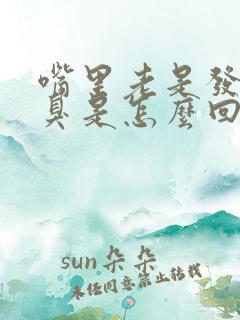 嘴里老是發
臭是怎麽回
sun朵朵
未经同意禁止转载